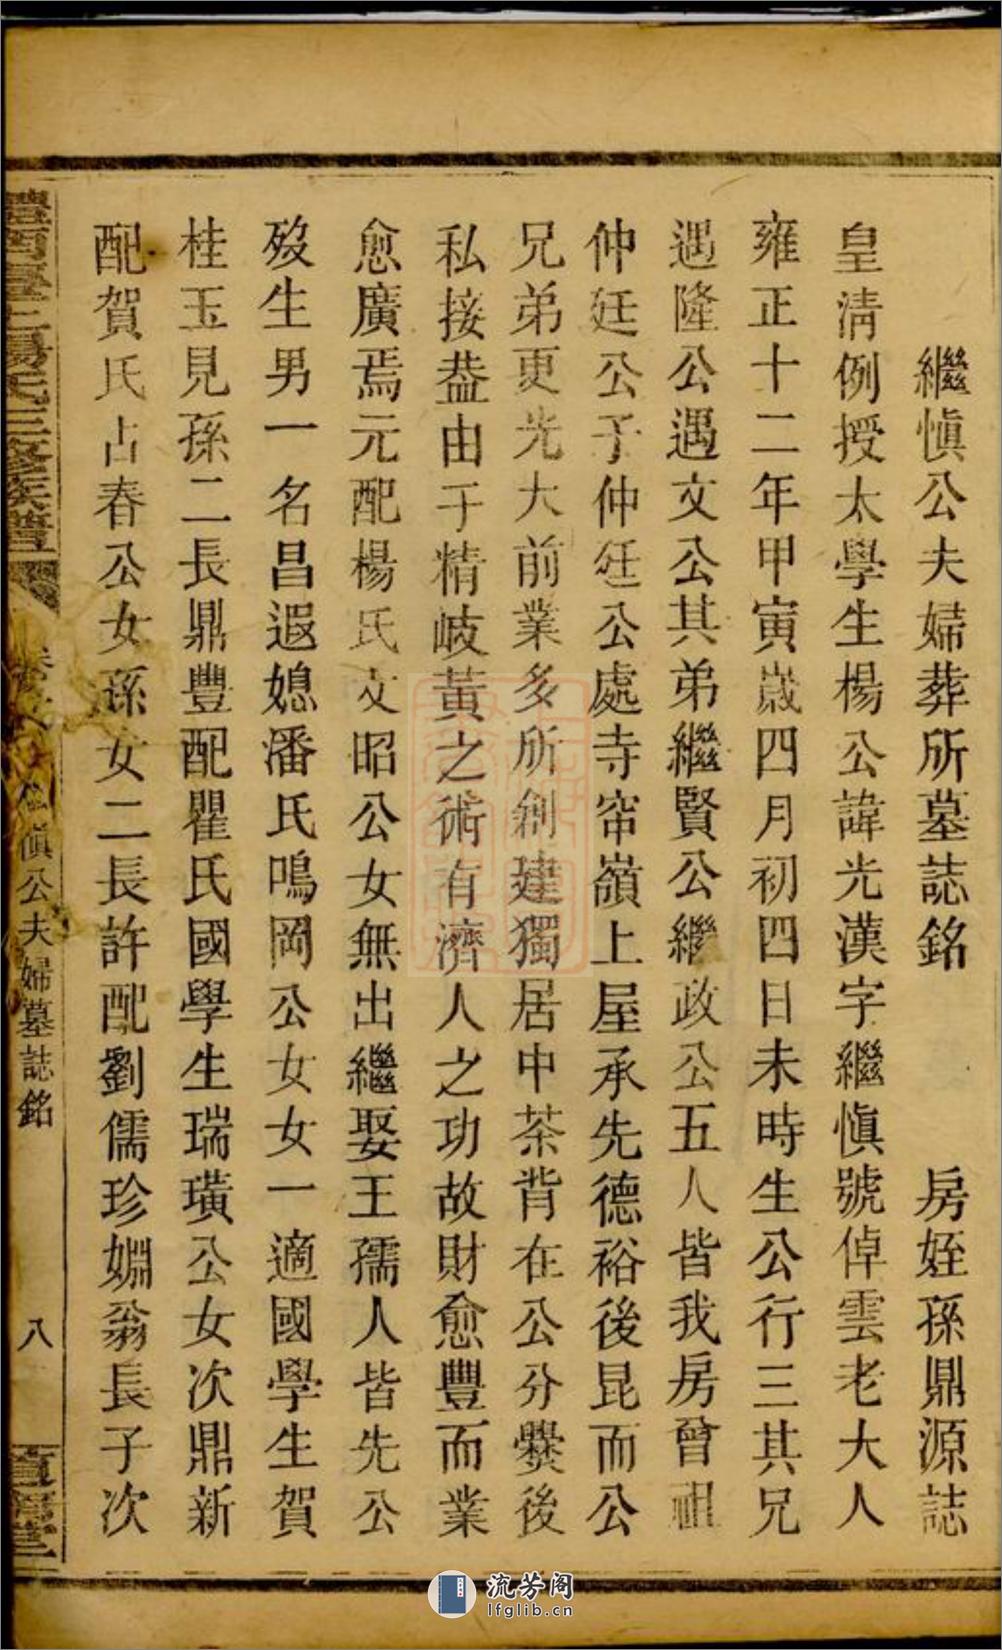 繼愼公夫婦葬所墓誌銘　房姪孫鼎源誌
皇清例授太學生楊公諱光漢字繼愼號倬雲老大人
雍正十二年甲寅歲四月初四日未時生公行三其兄
遇隆公遇文公其弟繼賢公繼政公五人皆我房曾祖
仲廷公子仲廷公處寺帘嶺上屋承先德裕後昆而公
兄弟更光大前業多所創建獨居中茶背在公分爨後
私接葢由于精岐黃之術有濟人之功故財愈豐而業
愈廣焉元配楊氏文昭公女無出繼娶王孺人皆先公
歿生男一名昌遐媳潘氏鳴岡公女女一適國學生賀
桂玉見孫二長鼎豐配瞿氏國學生瑞璜公女次鼎新
配賀氏占春公女孫女二長許配劉儒珍婣翁長子次
愼公夫婦墓誌銘
八
流芳阁
lfglib.cn